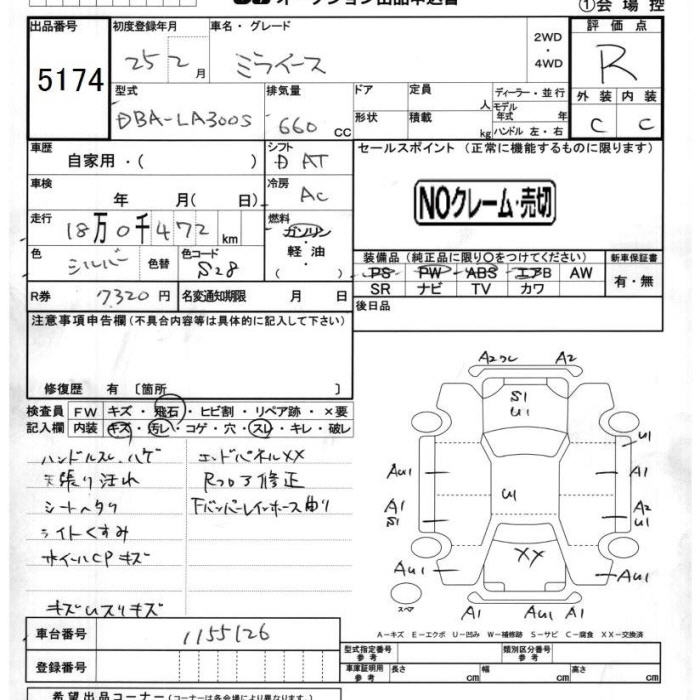 オークション出品申込書
①会場控
出品番号
5174
初度登録年月
25 2月
車名・グレード
ミライース
2WD
・
4WD
評価点
R
外装 内装
C C
型式
DBA-LA300S
排気量
660 CC
ドア
形状
定員 人
積載 kg
ディーラー・並行
モデル年式 年
ハンドル 左・右
車歴
自家用・( )
シフト
D AT
セールスポイント (正常に機能するものに限ります)
NOクレーム・売切
車検
年 月( 日)
冷房
AC
走行
18万0千472km
燃料
ガソリン
軽油
( )
色
シルバー
色替
色コード
S28
装備品 (純正品に限り○をつけてください)
PS PW ABS エアB AW
SR ナビ TV カワ
新車保証書
有・無
R券 7320円
名変通知期限 月 日
後日品
注意事項申告欄(不具合内容等は具体的に記入して下さい)
修復歴 有 〔箇所 〕
検査員記入欄
FW キズ・飛石・ヒビ割・リペア跡・×要
内装 キズ・汚レ・コゲ・穴・スレ・キレ・破レ
ハンドルスレ、ハゲ
天張り汚れ
シートヘタリ
ライトくすみ
ホイールCPキズ
キズUスリキズ
エンドパネルXX
Rフロア修正
Fバンパーレインホース曲り
A2ワレ A2
S1
U1
U1
AU1 A1
A1
S1
U1
A2
U1
XX
AU1 AU1
A1 AU1 A1
スペア
A-キズ E-エクボ U-凹み W-補修跡 S-サビ C-腐食 XX-交換済
車台番号 1155126
登録番号
型式指定番号
参考
類別区分番号
参考
車庫証明用
参考
長さ cm 幅 cm 高さ cm
希望出品コーナー (コーナーは各会場により異なります。)